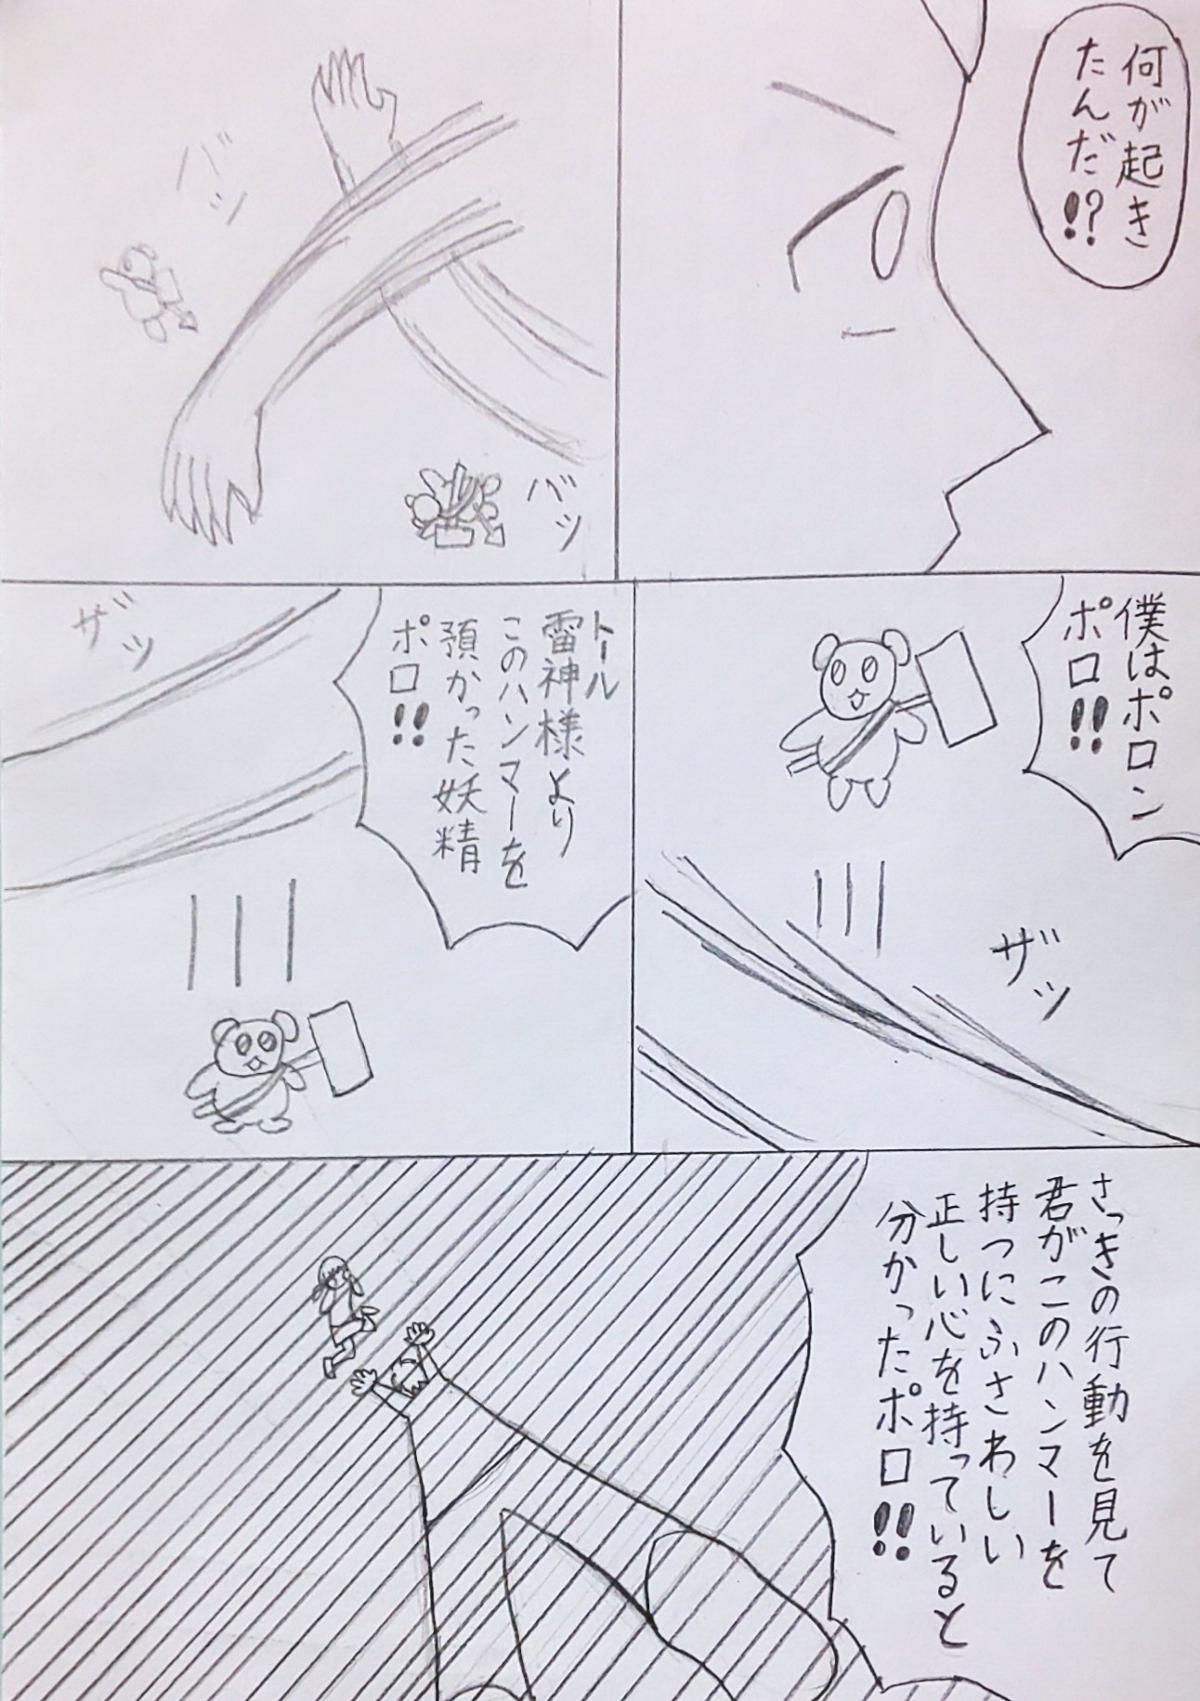 何が起き
たんだ!?
バッ
バッ
僕はポロン
ポロ!!
ザッ
トール
雷神様より
このハンマーを
預かった妖精
ポロ!!
ザッ
さっきの行動を見て
君がこのハンマーを
持つにふさわしい
正しい心を持っていると
分かったポロ!!